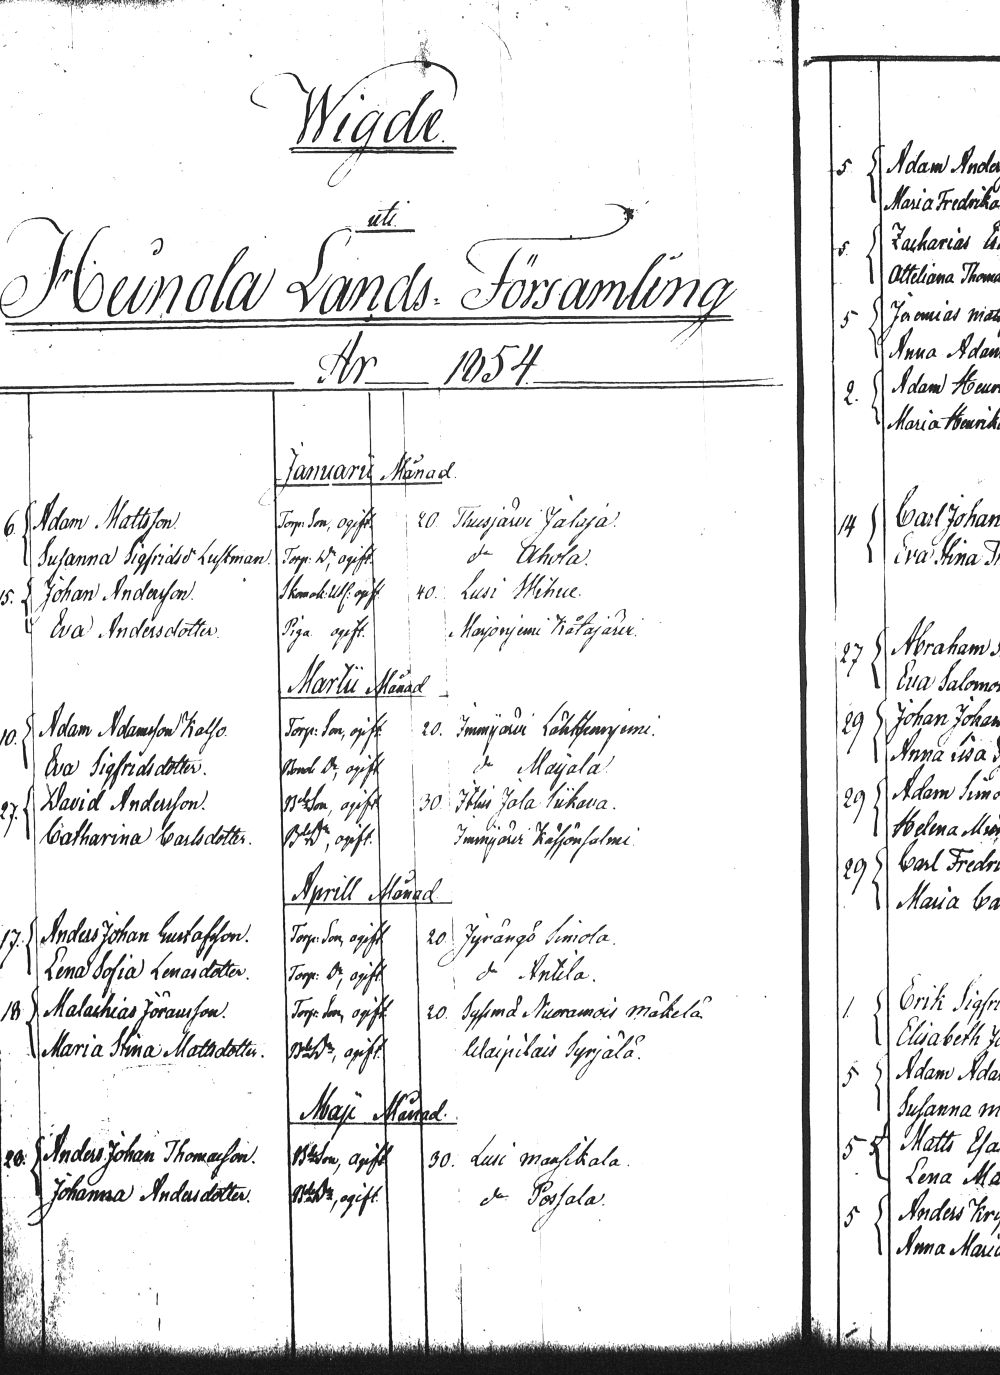 Wigde
uti
Heinola Lands-Församling
År 1854.
Januarii Månad.
6. Adam Mattsson Torp: Son, ogift. 20. Thusjärvi Jalaja.
Susanna Sigfridsdr Lustman. Torp: Dr, ogift. do Ahola.
15. Johan Andersson. ogift 40. Lusi
Eva Andersdotter Piga ogift. Marjoniemi Katajärvi.
Martii Månad
10. Adam Adamsson Kalso Torp: Son, ogift 20. Immjärvi
Eva Sigfridsdotter. Bonde Dr, ogift do Maijala.
27. David Andersson. Bde Son, ogift 30. Jala Siikava.
Catharina Carlsdotter. Bde Dr, ogift. Immjärvi
Aprill Månad.
17. Anders Johan Gustafsson. Torp: Son, ogift 20. Jyrängö Simola.
Lena Sofia Lenasdotter. Torp: Dr, ogift. do Antila.
18 Malachias Göransson. Torp: Son, ogift 20. Sysmä Nuoramois Mäkelä
Maria Stina Mattsdotter. Bde Dr, ogift. Syrjälä.
Maji Månad.
28. Anders Johan Thomasson. Bde Son, ogift 30. Lusi Mansikala.
Johanna Andersdotter. Bde Dr, ogift. do
5 Adam Ander
Maria Fredrika
5 Zacharias
Otteliana Thoma
5 Jeremias Mat
Anna Adam
2. Adam Henr
Maria Henrik
14 Carl Johan
Eva Stina
27 Abraham
Eva Salomo
29 Johan Johan
Anna Lisa
29 Adam Simo
Helena
29 Carl Fredri
Maria Ca
1. Erik Sigfri
Elisabeth Jo
5 Adam Ada
Susanna M
5 Matts Esa
Lena Ma
5 Anders
Anna Maria